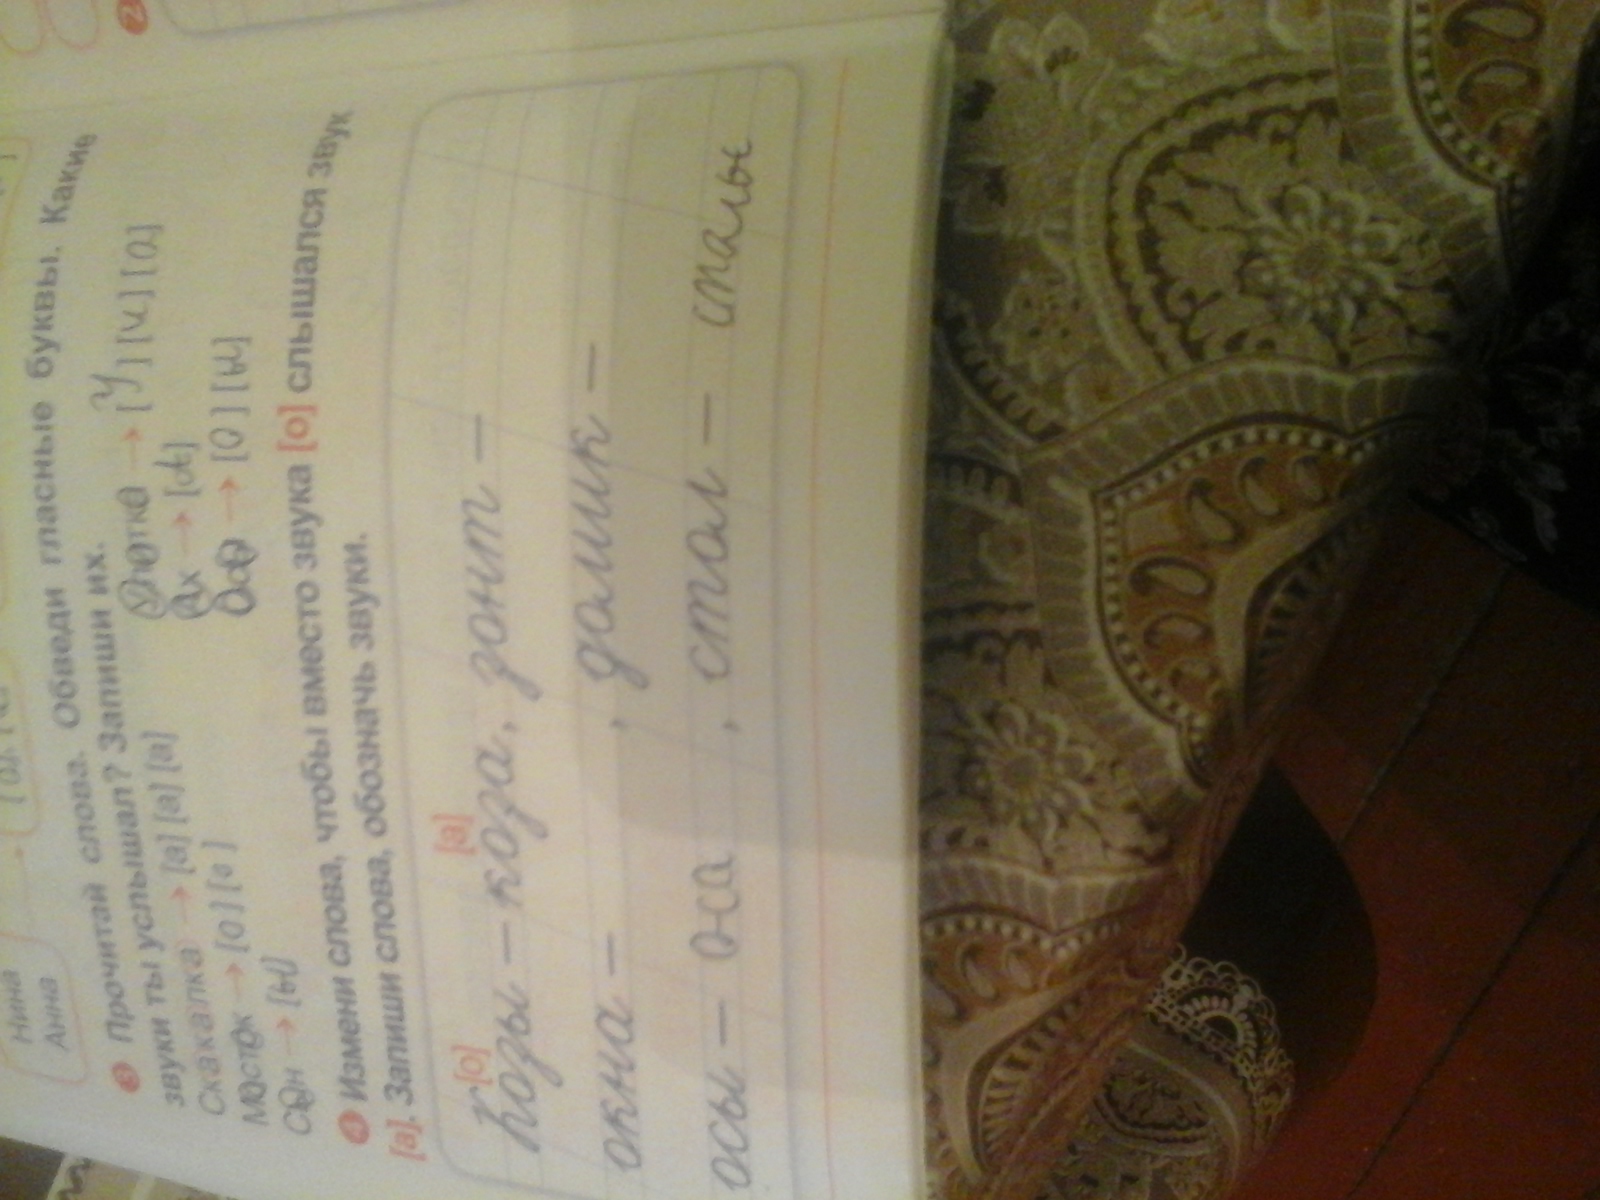 Нина
Анна
3 Прочитай слова. Обведи гласные буквы. Какие
звуки ты услышал? Запиши их.
Скакалка → [а] [а] [а]
Мосток → [о] [о]
Сон → [ы]
→ [У] [и] [а]
Ах → [а]
Оса → [о] [ы]
4 Измени слова, чтобы вместо звука [о] слышался звук
[а]. Запиши слова, обозначь звуки.
[о] [а]
Козы – коза, зонт –
окна – , домик –
осы – оса , стол – столы